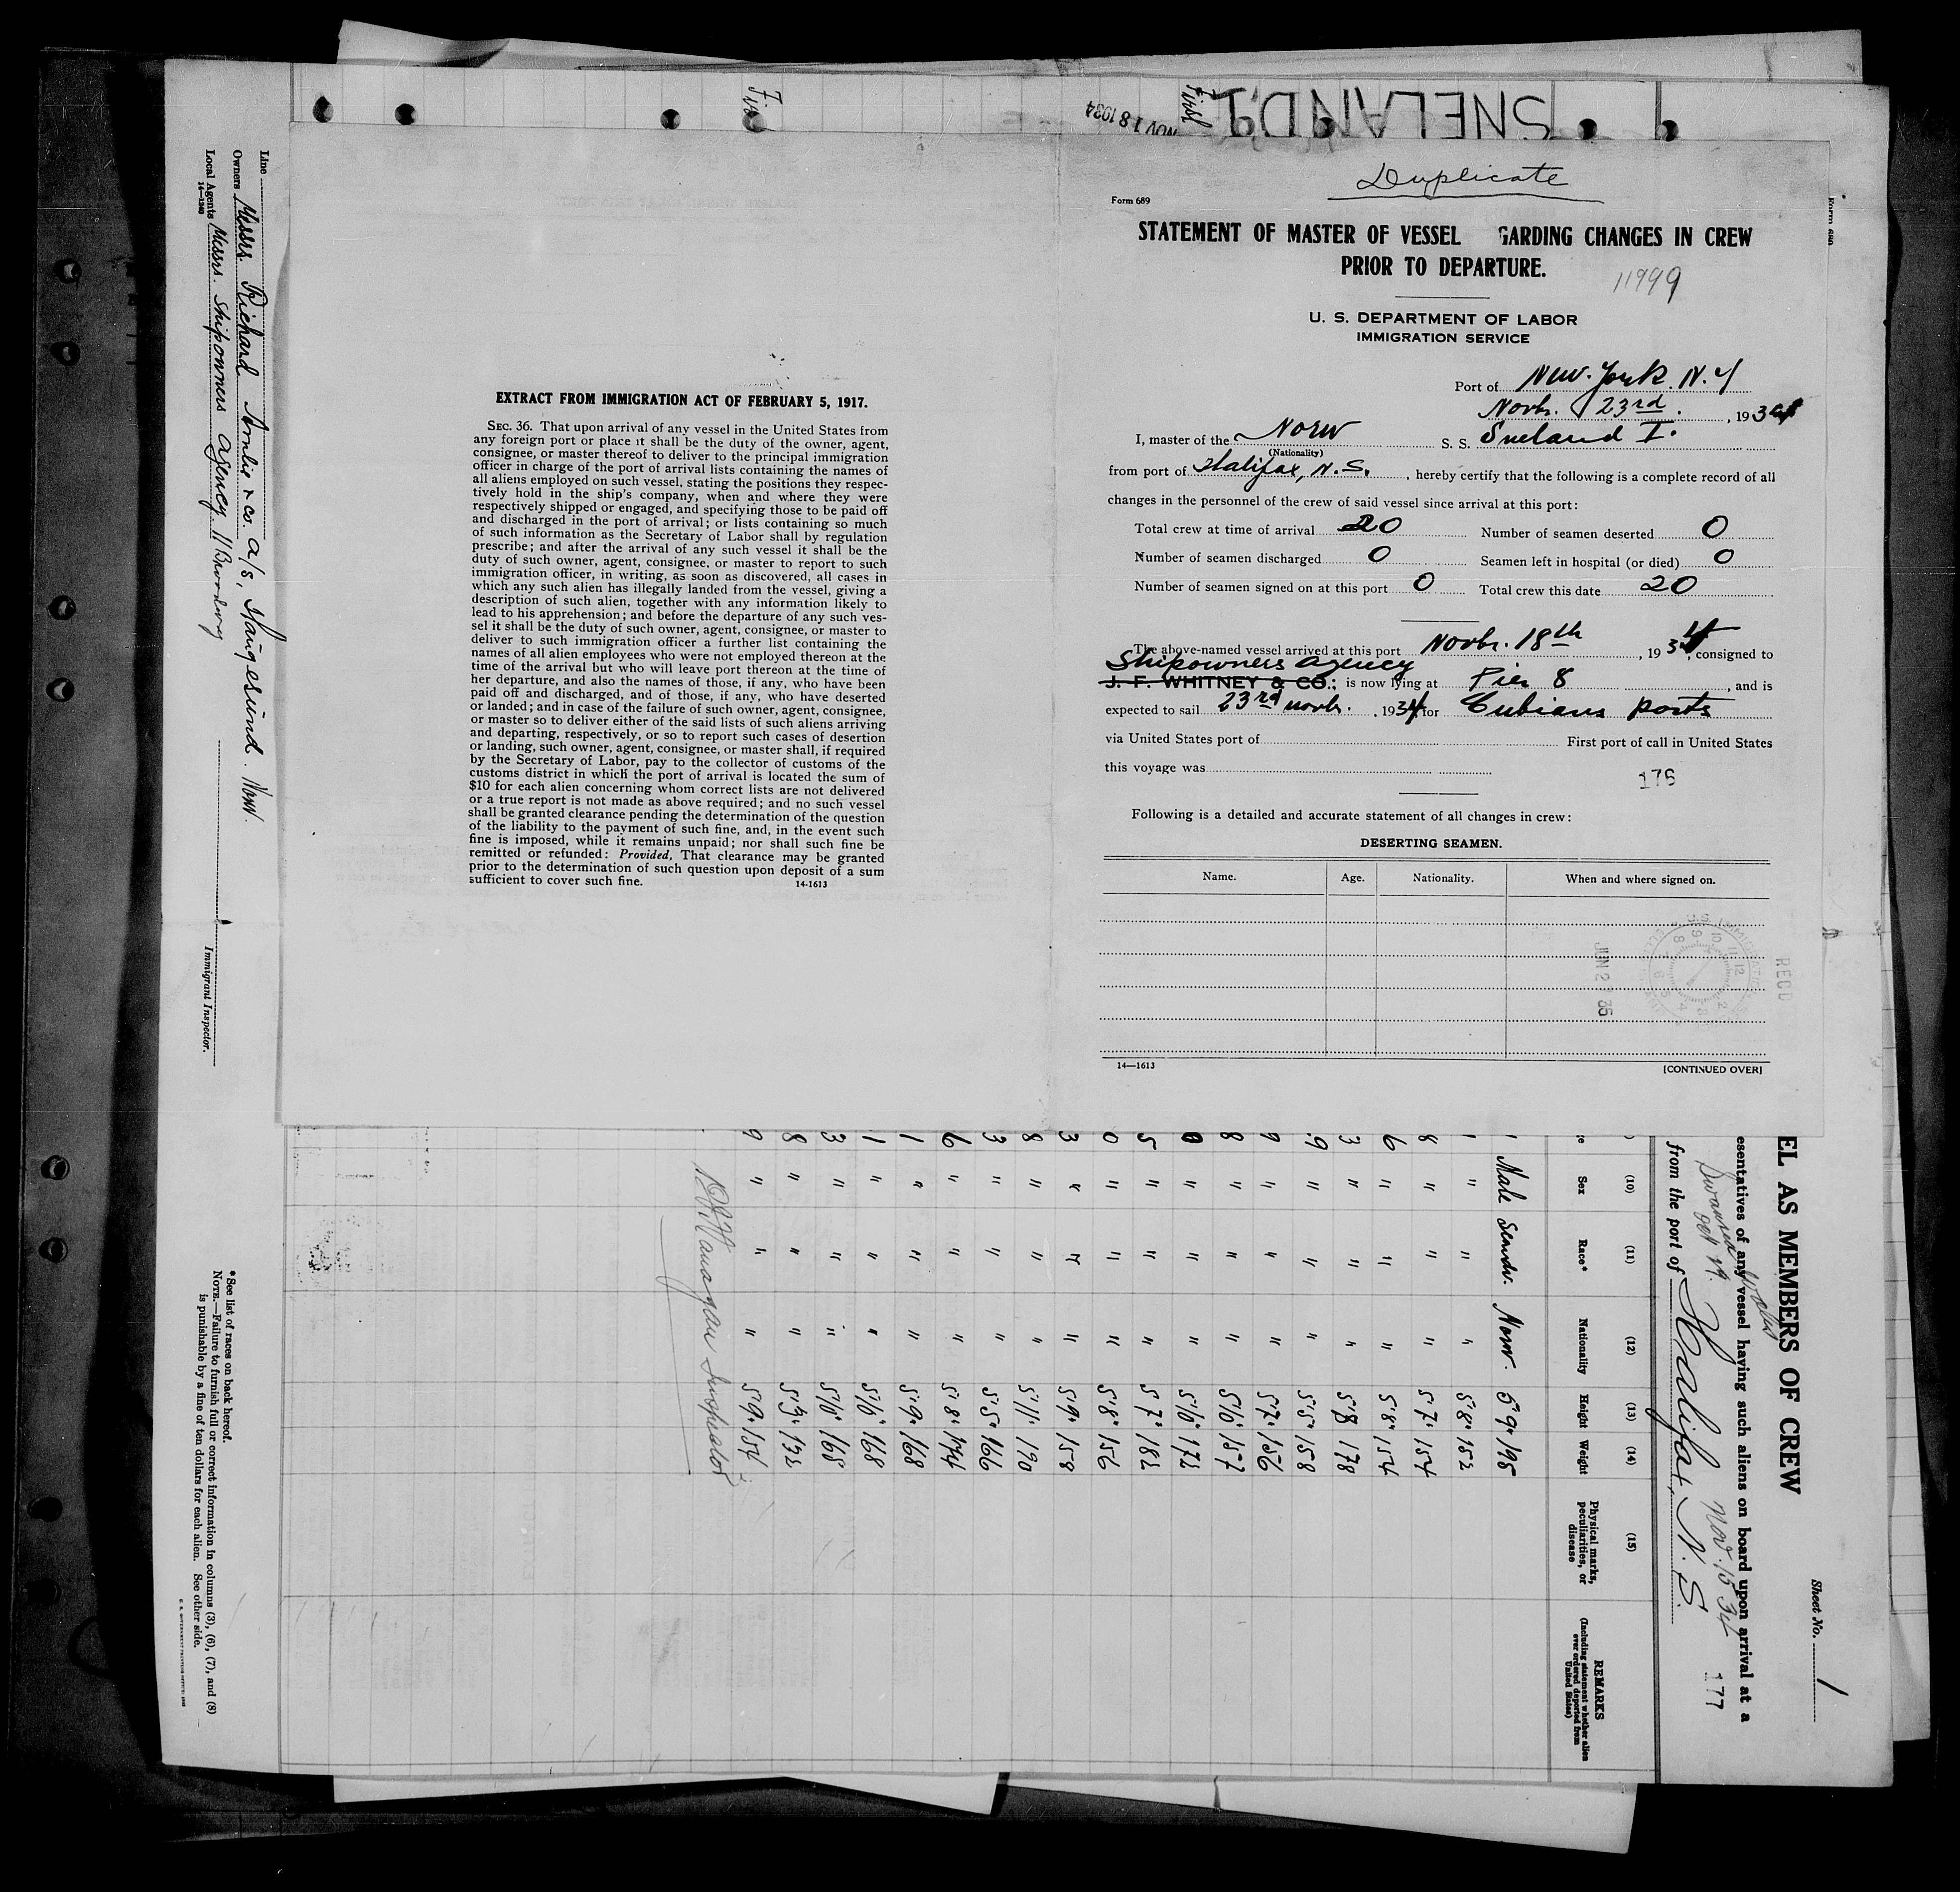 SNELAND I
First
NOV 18 1934
First
Duplicate
Form 689
STATEMENT OF MASTER OF VESSEL GARDING CHANGES IN CREW
PRIOR TO DEPARTURE.
11999
U. S. DEPARTMENT OF LABOR
IMMIGRATION SERVICE
Port of New-York. N.Y
Novbr. 23rd. , 1934
I, master of the Norw S. S. Sneland I.
(Nationality)
from port of Halifax, N.S. , hereby certify that the following is a complete record of all
changes in the personnel of the crew of said vessel since arrival at this port:
Total crew at time of arrival 20 Number of seamen deserted 0
Number of seamen discharged 0 Seamen left in hospital (or died) 0
Number of seamen signed on at this port 0 Total crew this date 20
The above-named vessel arrived at this port Novbr. 18th , 1934, consigned to
Shipowners Agency
J. F. WHITNEY & CO.; is now lying at Pier 8 , and is
expected to sail 23rd novb. , 1934 for Cubians ports
via United States port of First port of call in United States
this voyage was
176
Following is a detailed and accurate statement of all changes in crew:
DESERTING SEAMEN.
Name. Age. Nationality. When and where signed on.
RECD
JUN 2 35
14—1613 [CONTINUED OVER]
EXTRACT FROM IMMIGRATION ACT OF FEBRUARY 5, 1917.
SEC. 36. That upon arrival of any vessel in the United States from
any foreign port or place it shall be the duty of the owner, agent,
consignee, or master thereof to deliver to the principal immigration
officer in charge of the port of arrival lists containing the names of
all aliens employed on such vessel, stating the positions they respec-
tively hold in the ship's company, when and where they were
respectively shipped or engaged, and specifying those to be paid off
and discharged in the port of arrival; or lists containing so much
of such information as the Secretary of Labor shall by regulation
prescribe; and after the arrival of any such vessel it shall be the
duty of such owner, agent, consignee, or master to report to such
immigration officer, in writing, as soon as discovered, all cases in
which any such alien has illegally landed from the vessel, giving a
description of such alien, together with any information likely to
lead to his apprehension; and before the departure of any such ves-
sel it shall be the duty of such owner, agent, consignee, or master to
deliver to such immigration officer a further list containing the
names of all alien employees who were not employed thereon at the
time of the arrival but who will leave port thereon at the time of
her departure, and also the names of those, if any, who have been
paid off and discharged, and of those, if any, who have deserted
or landed; and in case of the failure of such owner, agent, consignee,
or master so to deliver either of the said lists of such aliens arriving
and departing, respectively, or so to report such cases of desertion
or landing, such owner, agent, consignee, or master shall, if required
by the Secretary of Labor, pay to the collector of customs of the
customs district in which the port of arrival is located the sum of
$10 for each alien concerning whom correct lists are not delivered
or a true report is not made as above required; and no such vessel
shall be granted clearance pending the determination of the question
of the liability to the payment of such fine, and, in the event such
fine is imposed, while it remains unpaid; nor shall such fine be
remitted or refunded: Provided, That clearance may be granted
prior to the determination of such question upon deposit of a sum
sufficient to cover such fine. 14-1613
Sheet No. 1
EL AS MEMBERS OF CREW
esentatives of any vessel having such aliens on board upon arrival at a
from the port of Halifax, N. S.
Nov. 15 34
177
(10) (11) (12) (13) (14) (15)
Sex Race* Nationality Height Weight Physical marks, peculiarities, or disease REMARKS (Including statement whether alien ever ordered deported from United States)
Male Scandv. Norw. 5'9" 195
1 " " " 5'8" 152
8 " " " 5'7" 154
6 " " " 5'8" 154
3 " " " 5'8 178
9 " " " 5'5" 158
9 " " " 5'7" 156
8 " " " 5'10" 157
0 " " " 5'10" 172
5 " " " 5'7" 182
0 " " " 5'8" 156
3 " " " 5'9" 158
8 " " " 5'11" 190
3 " " " 5'5" 166
6 " " " 5'8" 144
1 " " " 5'9" 168
1 " " " 5'10" 168
3 " " " 5'10" 168
8 " " " 5'3" 132
9 " " " 5'9" 154
Inspector
Line
Owners Messrs Richard Amlie & co. a/s, Haugesund. Norw.
Local Agents Messrs. Shipowners Agency 11 Broadway
14—1240
Immigrant Inspector.
*See list of races on back hereof.
NOTE.—Failure to furnish full or correct information in columns (3), (6), (7), and (8)
is punishable by a fine of ten dollars for each alien. See other side.